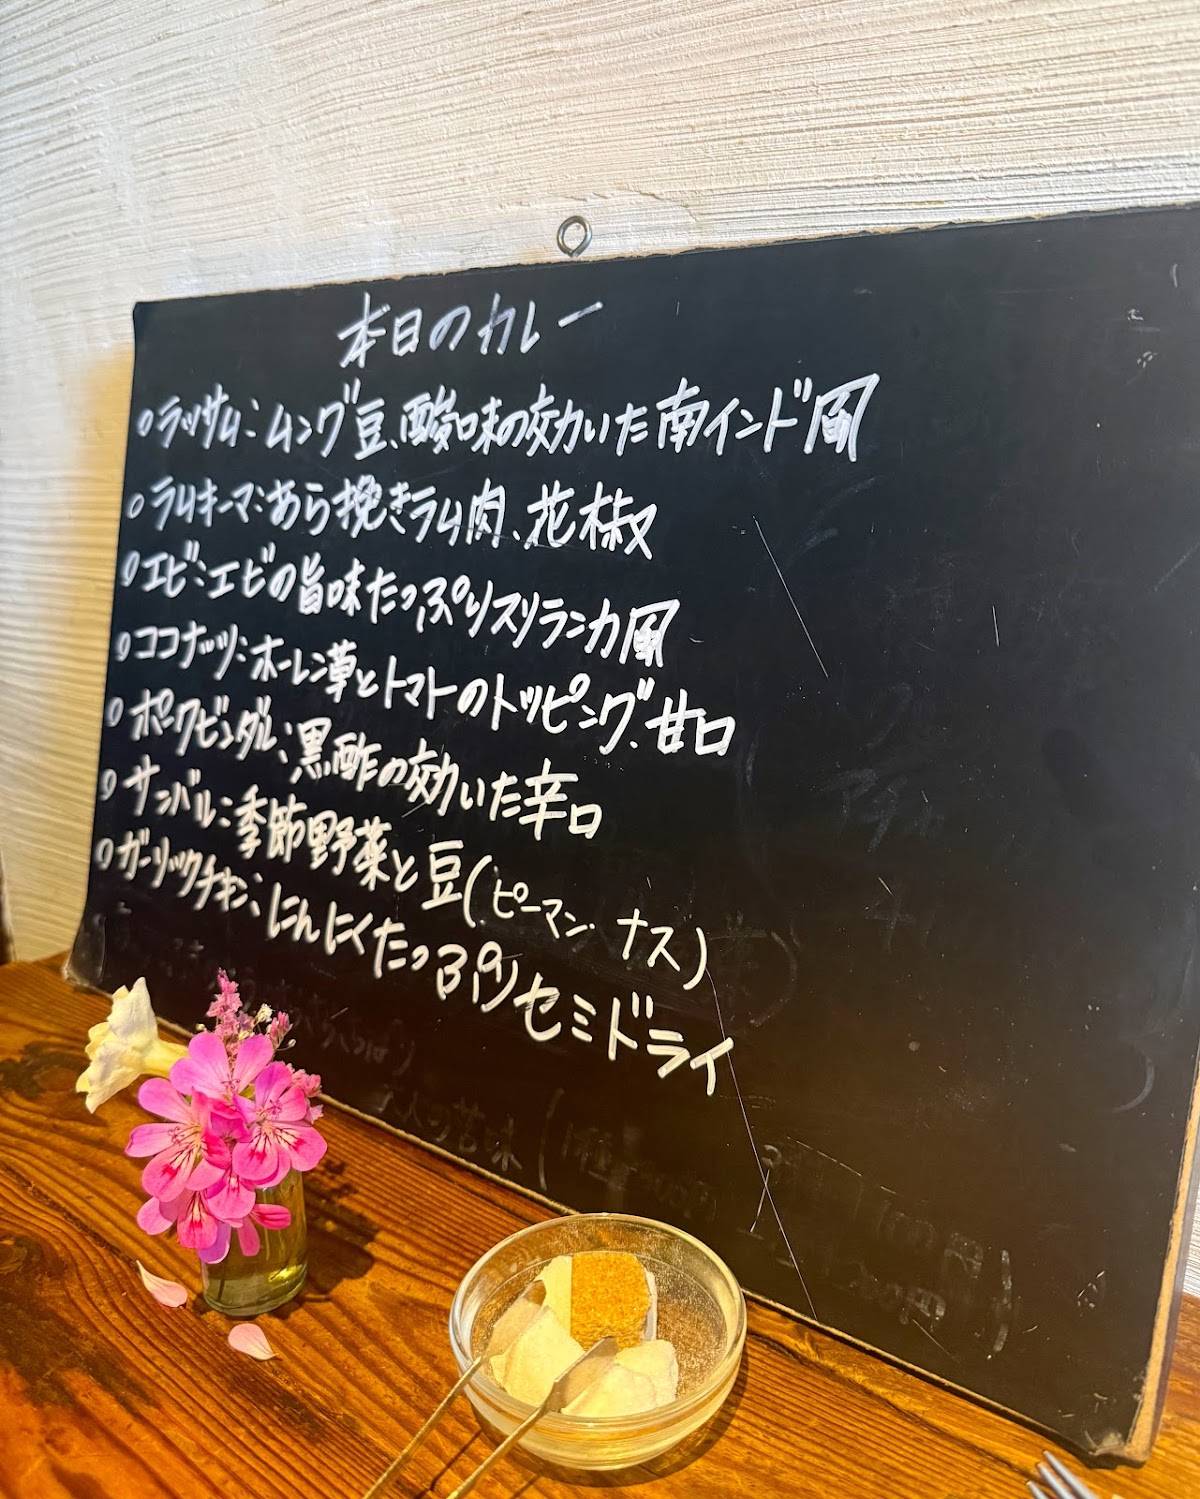 本日のカレー
○ラッサム:ムング豆、酸味の効いた南インド風
○ラムキーマ:あら挽きラム肉、花椒
○エビ:エビの旨味たっぷりスリランカ風
○ココナッツ:ホーレン草とトマトのトッピング、甘口
○ポークビンダル:黒酢の効いた辛口
○サンバル:季節野菜と豆(ピーマン・ナス)
○ガーリックチキン:にんにくたっぷりセミドライ